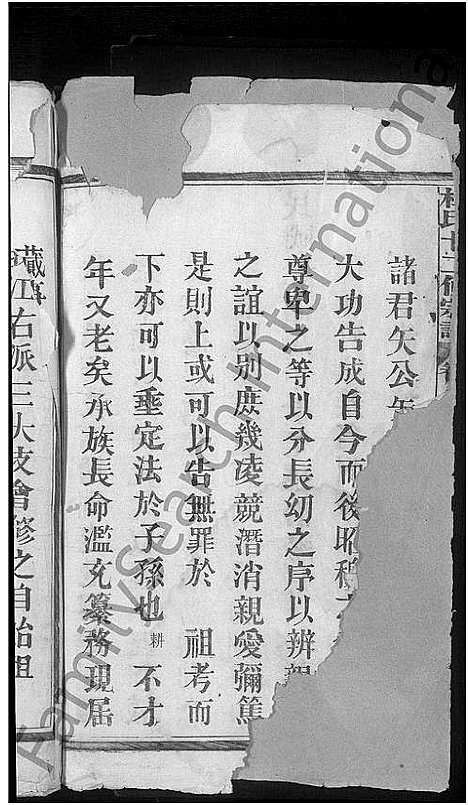 杜氏十二修宗譜
諸君矢公矢
大功告成自今而後昭穆之
尊卑之等以分長幼之序以辨親
之誼以别庶幾凌競潛消親愛彌篤
是則上或可以告無罪於 祖考而
下亦可以垂定法於子孫也 耕 不才
年又老矣承族長命濫充纂務現届
江右派三大支會修之自始祖
FamilySearch International